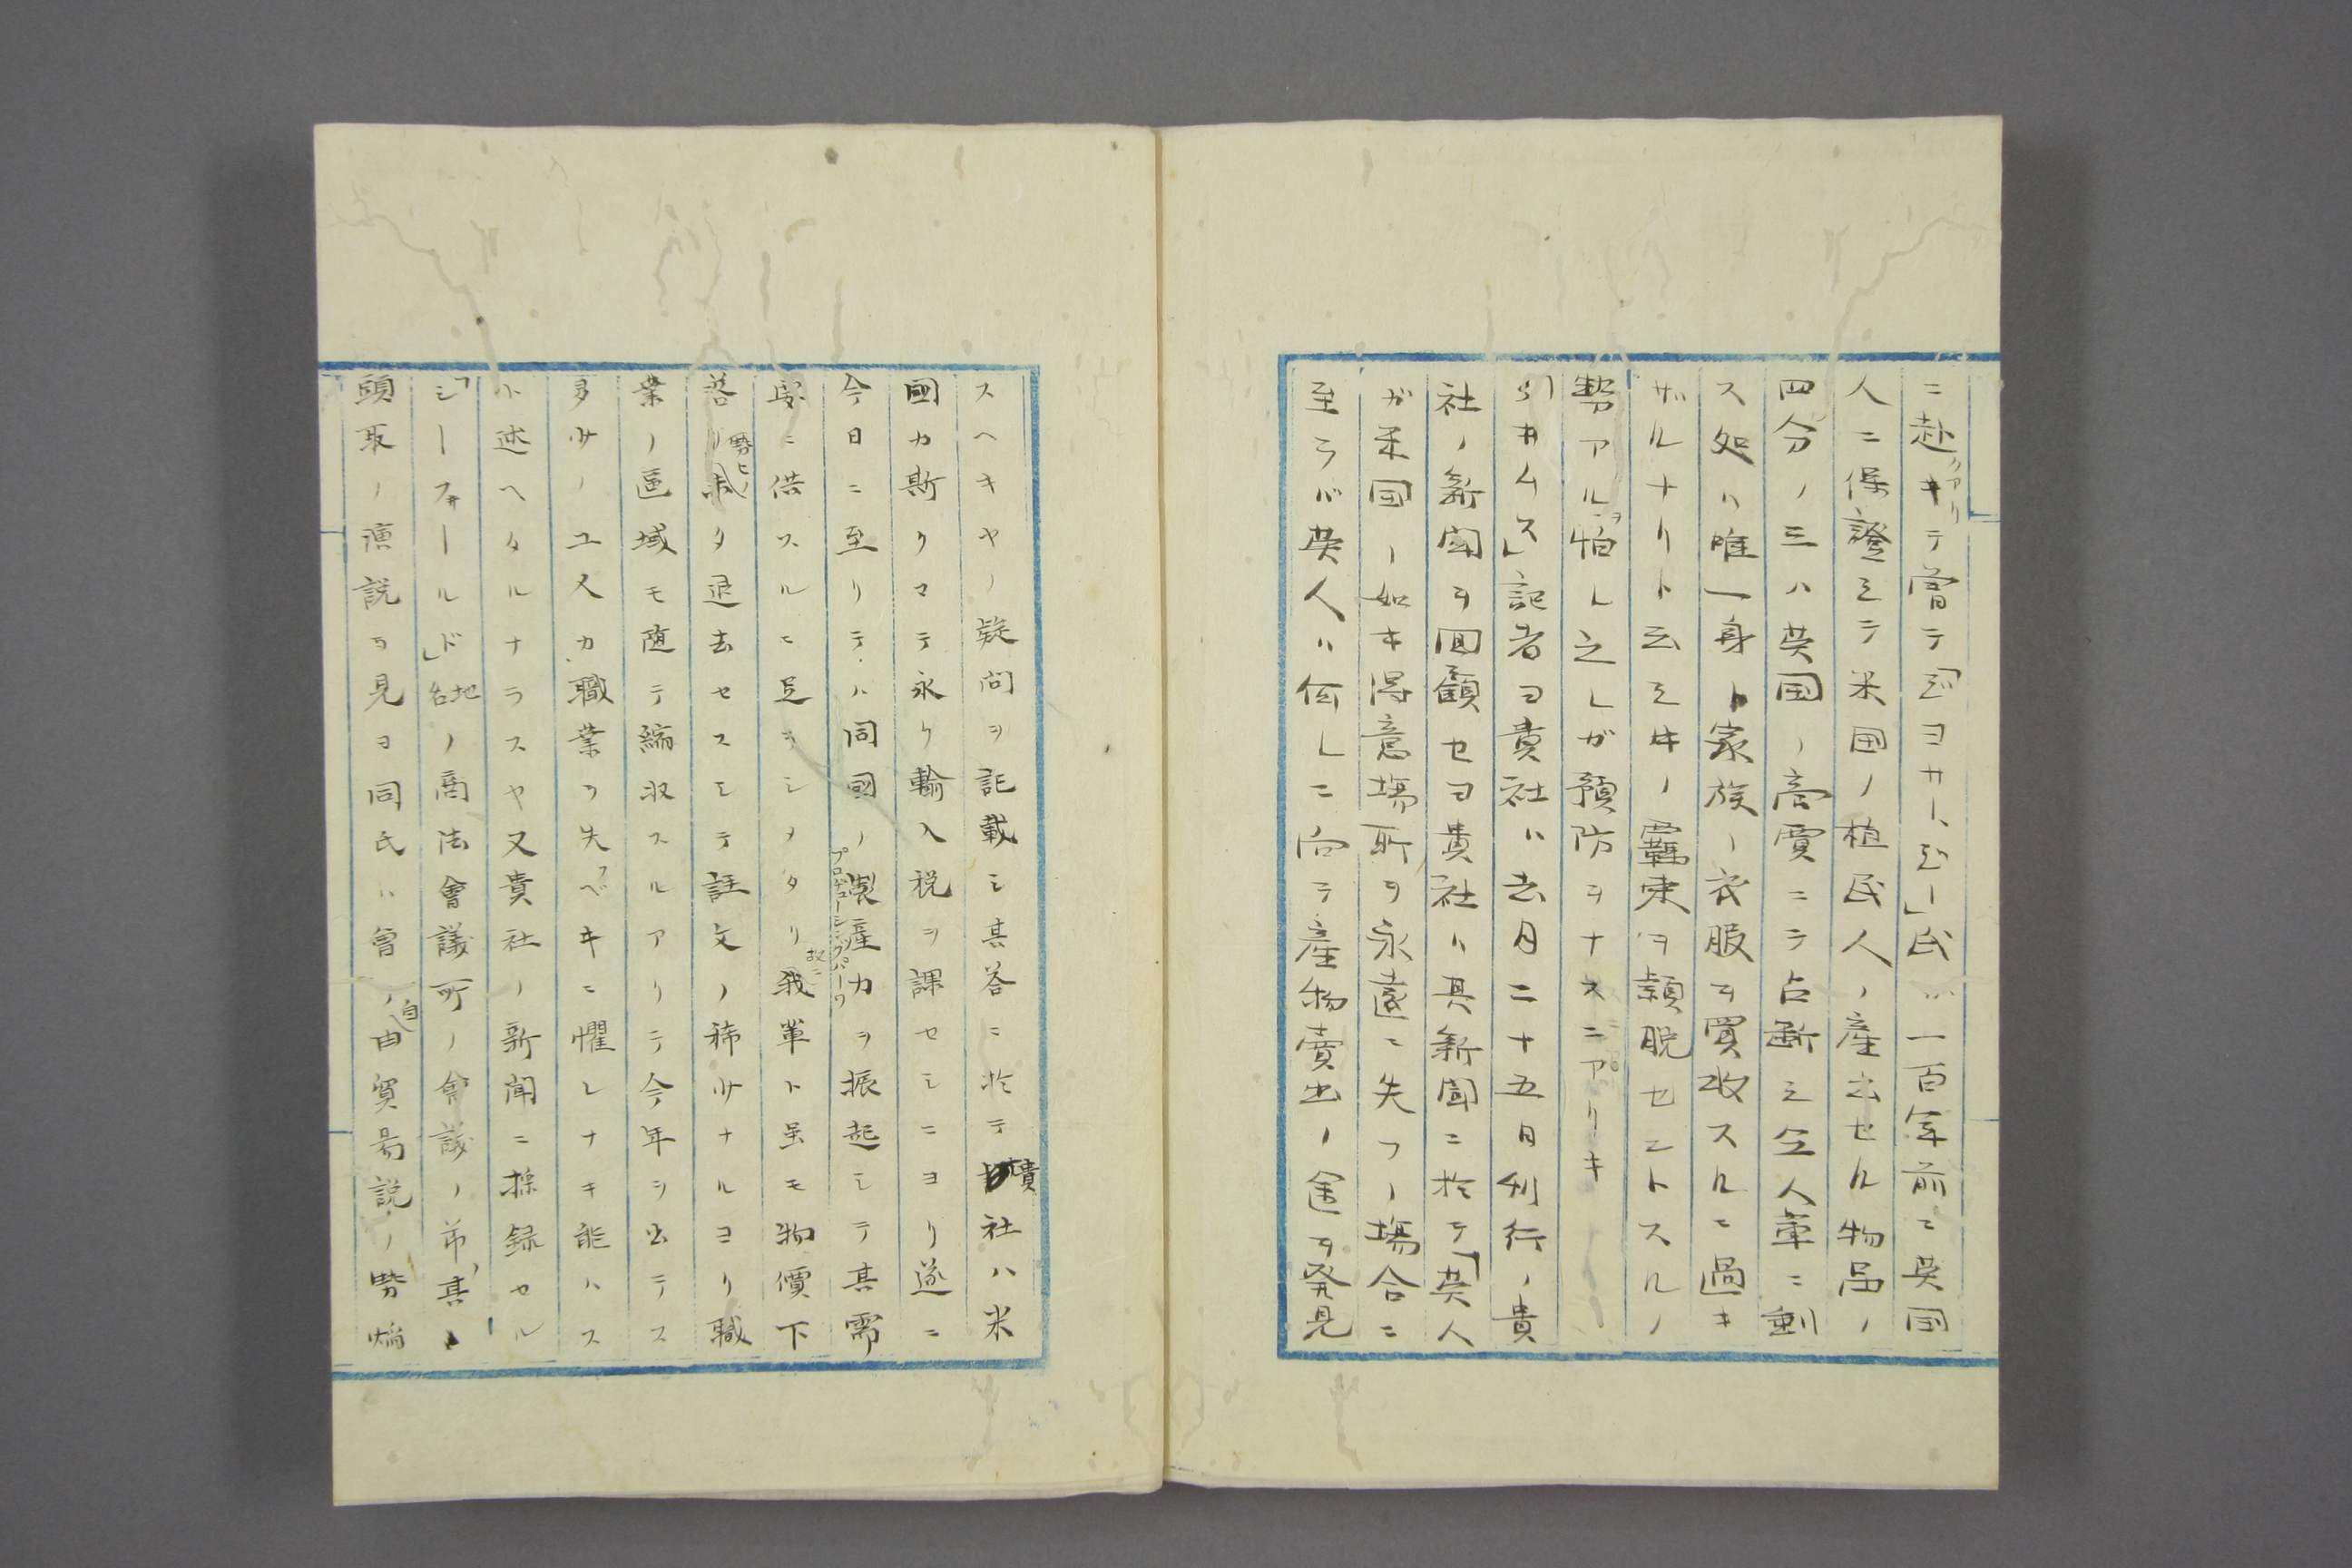 ニ赴キテ曽テ「ジヨサ、ジー」氏ガ一百年前ニ英国
人ニ保證シテ米国ノ植民人ノ産出セル物品ノ
四分ノ三ハ英国ノ商賈ニテ占断シ全人輩ニ剰
ス処ハ唯一身ト家族ノ衣服ヲ買收スルニ過キ
ザルナリト云シ其ノ羈束ヲ頴脱セントスルノ
勢アルヲ怕レ之レガ預防ヲナスニアリキ
記者曰貴社ハ去月二十五日刊行ノ貴
社ノ新聞ヲ回顧セヨ貴社ハ其新聞ニ於テ「英人
ガ米国ノ如キ得意場所ヲ永遠ニ失フノ場合ニ
至ラバ英人ハ何レニ向テ産物賣出ノ途ヲ発見
スヘキヤノ疑问ヲ記載シ其答ニ於テ貴社ハ米
國カ斯クマテ永ク輸入税ヲ課セシニヨリ遂ニ
今日ニ至リテハ同國ノ製産力ヲ振起シテ其需
プロデューシングパーワ
要ニ供スルニ足ラシメタリ故ニ我輩ト虽モ物價下
落ノ勢ヒノ未タ退去セスシテ註文ノ稀少ナルヨリ職
業ノ區域モ随テ縮収スルアリテ今年ヲ出テス
多少ノ工人カ職業ヲ失フベキニ懼レナキ能ハス
ト述ヘタルナラスヤ又貴社ノ新聞ニ採録セル
「シーフォールド」地名ノ商法會議所ノ會議ノ節其
頭取ノ演説ヲ見ヨ同氏ハ曾ノ自由貿易説ノ勢焔